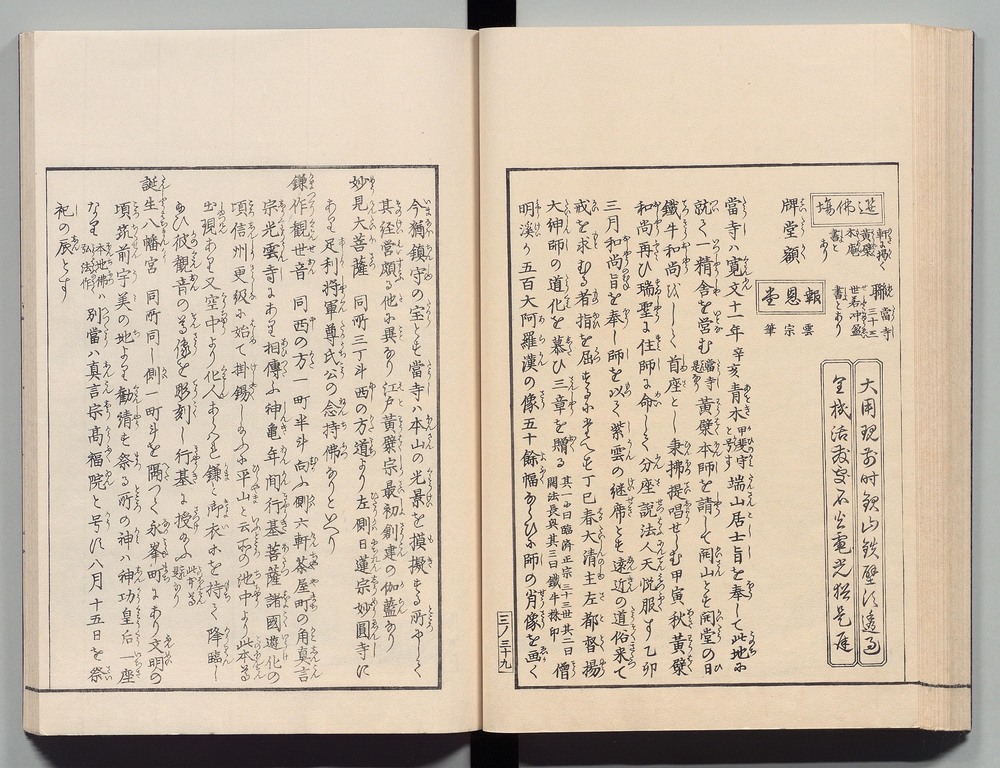 選佛場
軒に掲く
黄檗
本庵
書と
あり
聯
當寺
三十三
世若冲盈
書とあり
牌堂額
報恩堂
雲宗筆
大用現前时銀山鉄壁须透過
全機活發处石火電光猶是遅
當寺ハ寛文十一年辛亥青木甲斐守端山居士旨を奉して此地に
就く一精舎を営む當寺是なり黄檗本師を請して開山とす開堂の日
鐵牛和尚びしく首座とし秉拂提唱せしむ甲寅秋黄檗
和尚再ひ瑞聖に住師に命しく分座説法人天悦服す乙卯
三月和尚旨を奉し師を以く紫雲の继席とす遠近の道俗来て
戒を求むる者指を屈するに牟へす丁巳春大清主左都督揚
大神師の道化を慕ひ三章を贈る其一ニ曰臨済正宗三十三世其二曰開法長興其三曰鐵牛機印僧
明溪り五百大阿羅漢の像五十餘幅ならひに師の肖像を画く
三ノ三十九
今猶鎮守の宝とす當寺ハ本山の光景を摸擬する所やしく
其経営頗る他に異なり江戸黄檗宗最初創建の伽藍なり
妙見大菩薩 同所三丁斗西の方道より左側日蓮宗妙圓寺に
あり足利将軍尊氏公の念持佛なりといへり
鎌作観世音 同西の方一町半斗向ふ側六軒茶屋町の角真言
宗光雲寺にあり相傳ふ神亀年間行基菩薩諸國遊化の
頃信州更級に始て掛錫しのふに平山と云所の池中より此本尊
出現あり又空中より化人あらハれ鎌と御衣木を持く降臨し
のひ彼観音の尊像を彫刻し行基に授のふ此本尊是なり
誕生八幡宮 同所同し側一町斗を隔つく永峯町にあり文明の
頃筑前宇美の地より勧請す祭る所の神ハ神功皇后一座
なり本地佛ハ弘法作別當ハ真言宗高福院と号す八月十五日を祭
祀の辰とす